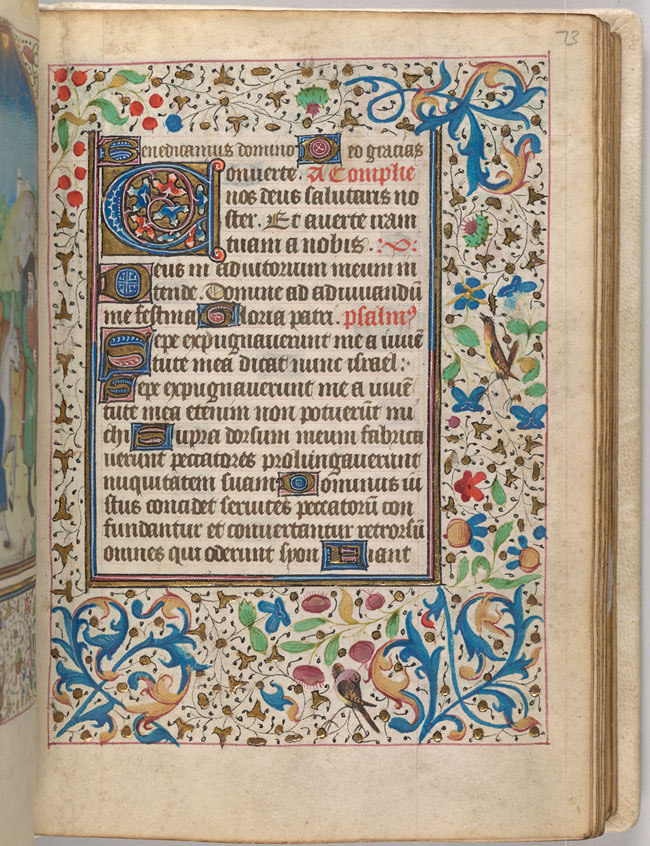 73
Benedicamus domino Deo gratias
Conuerte. A Complie
nos deus salutaris no
ster. Et auerte iram
tuam a nobis. :
Deus in adiutorium meum in
tende. Domine ad adiuuandū
me festina Gloria patri. psalmꝰ
Sepe expugnauerunt me a iuuē
tute mea dicat nunc israel:
Sepe expugnauerunt me a iuuē
tute mea etenim non potuerūt mi
chi Supra dorsum meum fabrica
uerunt peccatores prolungauerunt
iniquitatem suam Dominus iu
stus concidet seruices peccatorū con
fundantur et conuertantur retrorsū
omnes qui oderunt syon Fiant